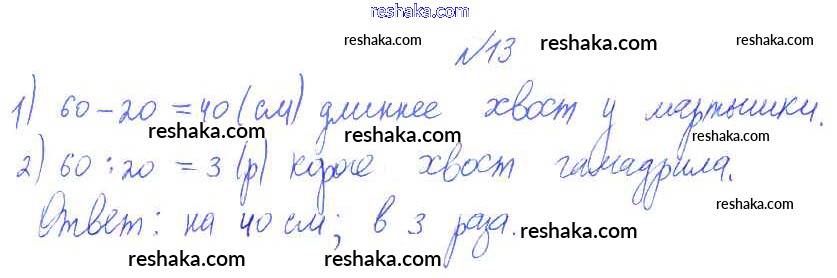 reshaka.com
№13 reshaka.com
reshaka.com
1) 60-20=40 (см) длиннее хвост у мартышки.
reshaka.com reshaka.com reshaka.com
2) 60:20=3 (р) короче хвост гамадрила.
reshaka.com
Ответ: на 40 см; в 3 раза.
reshaka.com
reshaka.com reshaka.com